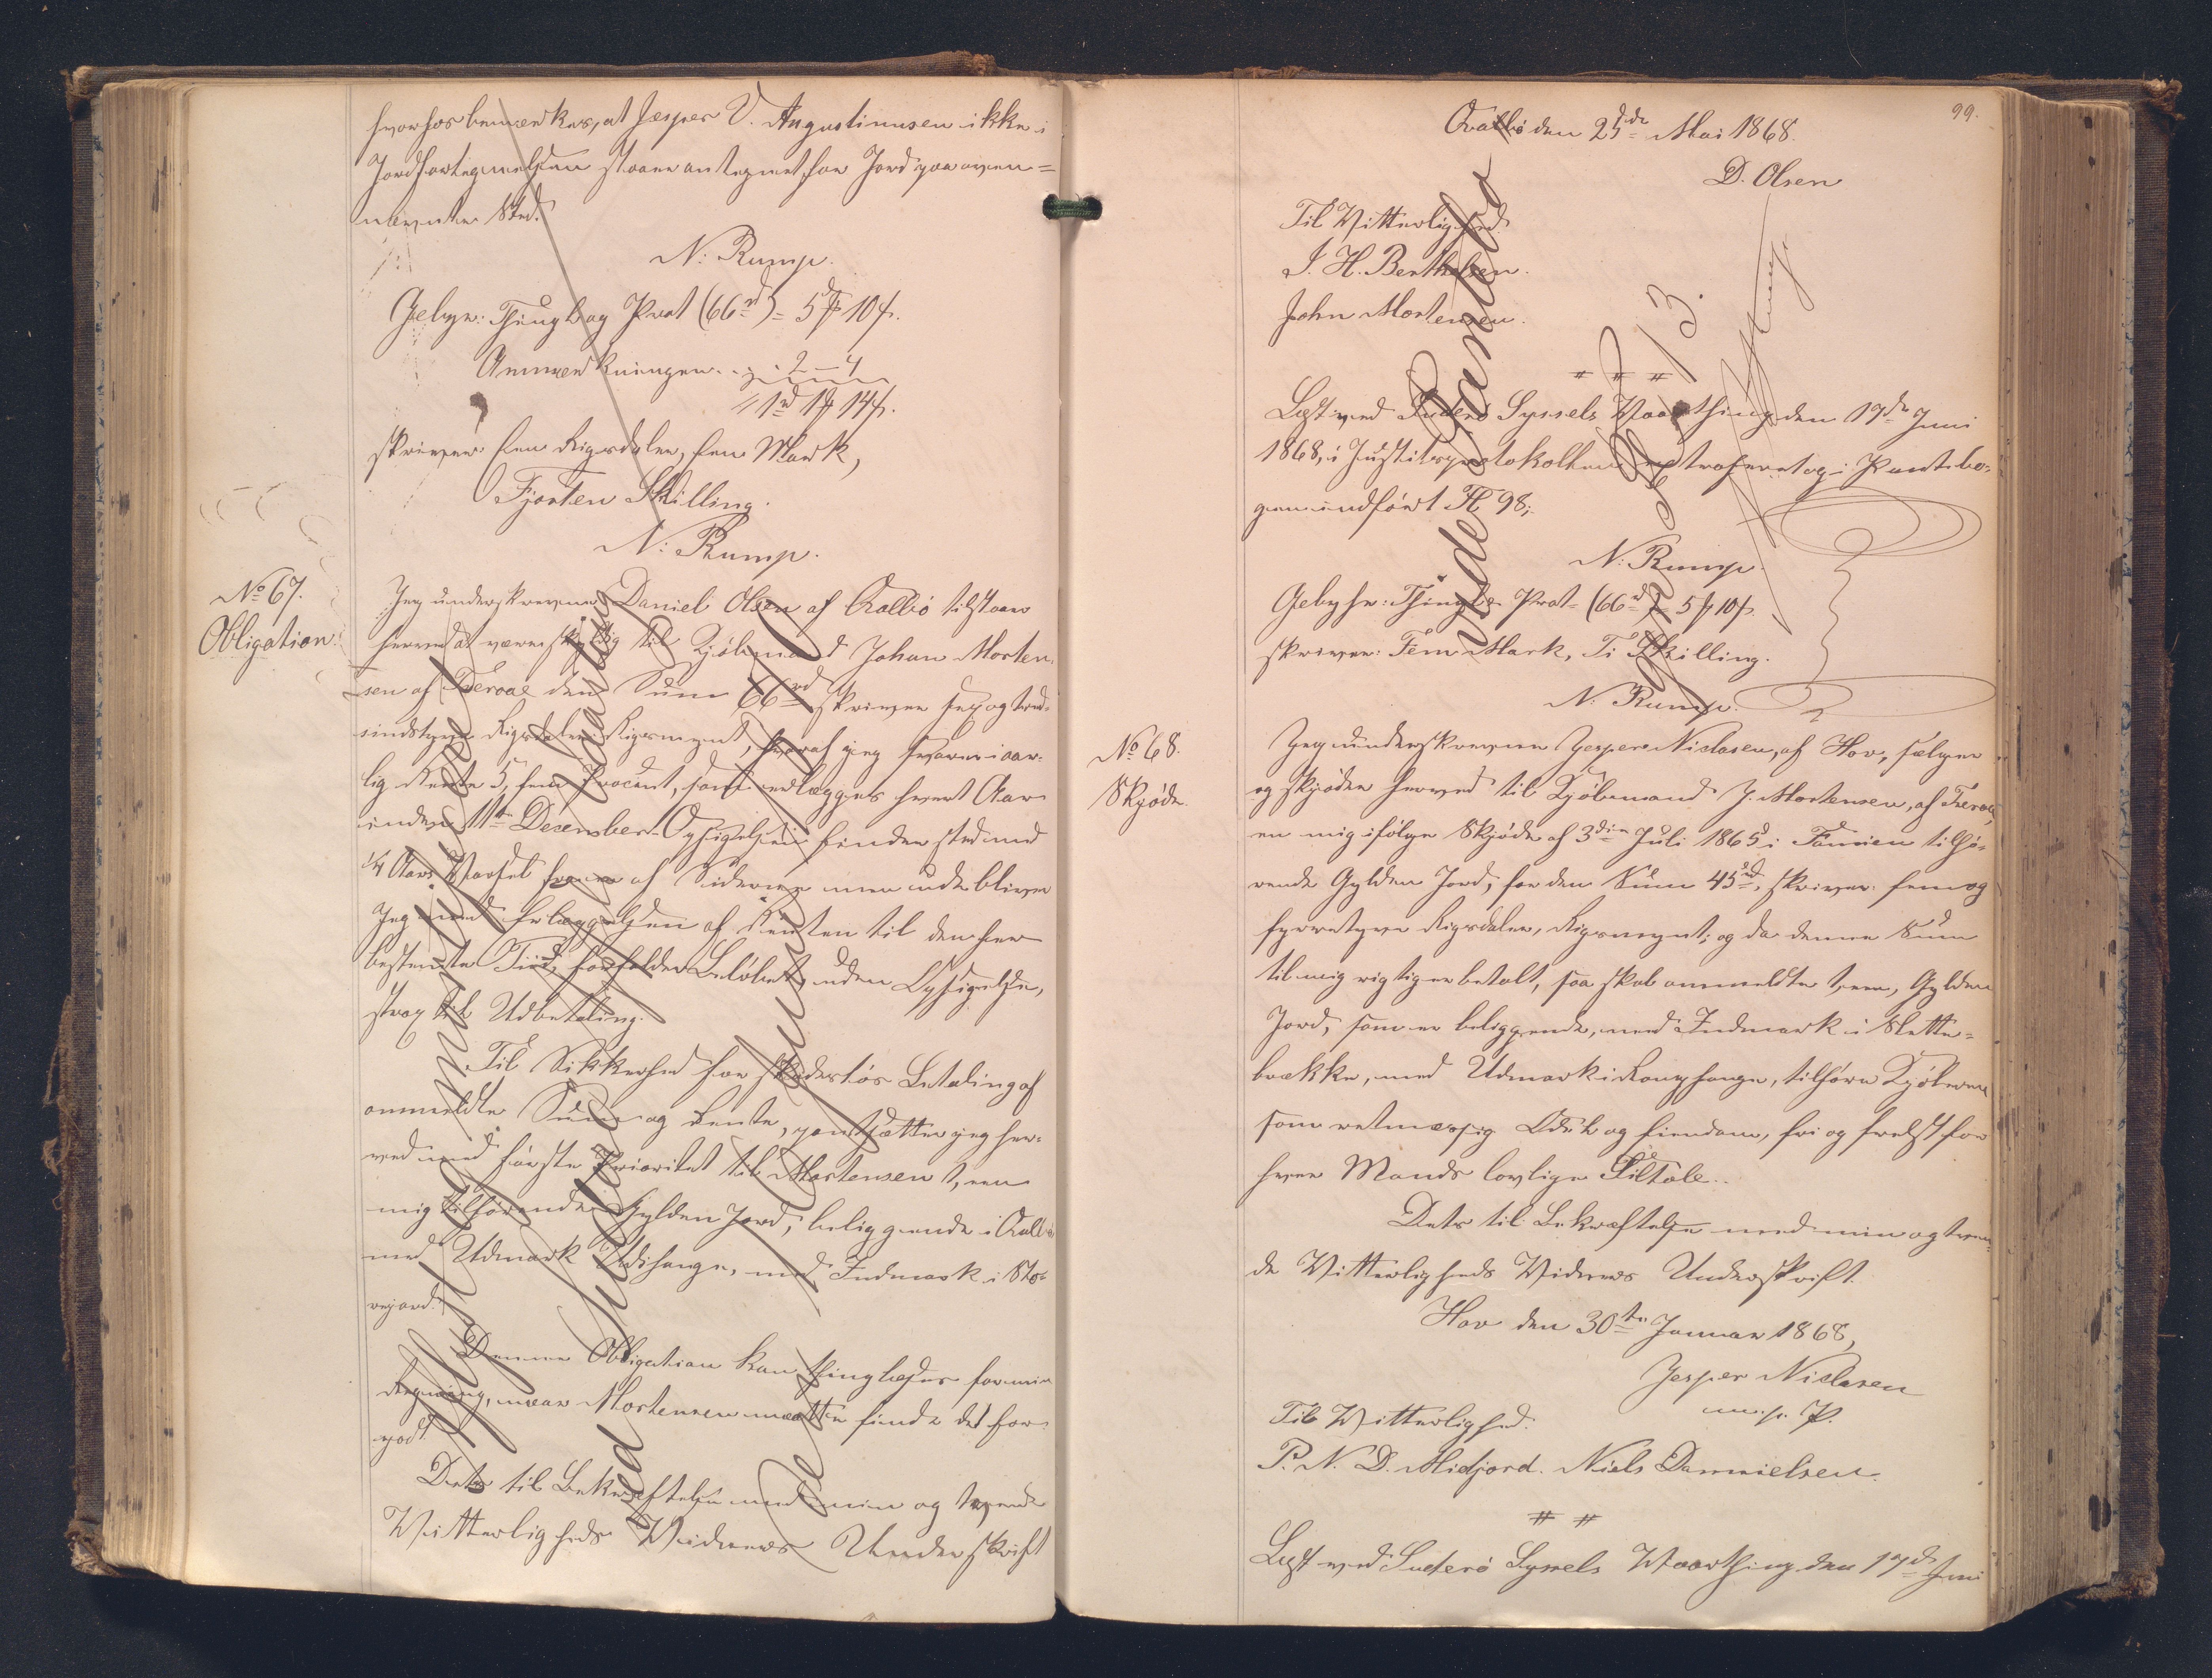 hvorhos bemærkes, at Jesper O. Augustinusen ikke i
Jordfortegnelsen staaer antegnet for Jord paa oven=
nævnte Sted.
N. Rump.
Gebyr: Thingl. og Prot (66rd) = 5 # 10 s.
Anmærkningen . . . 2 – 4
1rd 1# 14 s.
skriver: Een Rigsdaler, Een Mark,
Fjorten Skilling.
N: Rump.
No 67.
Obligation.
Jeg underskrevne Daniel Olsen af Qvalbö tilstaar
herved at være skyldig til Kjöbmand Johan Morten-
sen af Tveraae den Sum 66rd skriver sex og tred-
sindstyve Rigsdaler Rigsmynt, hvoraf jeg svarer i aar-
lig Rente 5, fem Procent, som erlægges hvert Aar
inden 11te December. Opsigelsen finder sted med
1/4 Aars Varsel fra en af Siderne men udebliver
Jeg med Erlæggelsen af Renten til den her
bestemte Tid, forfalder Belöbet, uden Opsigelse,
strax til Udbetaling.
Til Sikkerhed for skadeslös Betaling af
ommeldte Sum og Rente, pantsætter jeg her-
ved med förste Prioritet til Mortensen 1, een
mig tilhörende Gylden Jord, beliggende i Qvalbö
med Udmark Udihauge, med Indmark i Sto-
regard.
Denne Obligation kan thinglæses for min
Regning, naar Mortensen maatte finde det for-
godt.
Dets til Bekræftelse med min og tvende
Vitterligheds Vidners Underskrift
99.
Qvalbö den 25de Mai 1868.
D. Olsen
Til Vitterlighed.
J. H. Berthelsen.
John Mortensen.
# # #
Læst ved Suderö Syssels Vaarthing den 17de Juni
1868, i Justitsprotokollen extraheret og i Pantebo-
gen indfört Fl 98;
N. Rump.
Gebyhr: Thingl. & Prot. (66rd) = 5 # 10 s.
skriver: Fem Mark, Ti Skilling.
N. Rump.
vide Panteb
No 68.
Skjöde.
Jeg underskrevne Jesper Niclasen, af Hov, sælger
og skjöder herved til Kjöbmand J. Mortensen, af Tveraae,
en mig ifölge Skjöde af 3die Juli 1865 i Famien tilhö-
rende Gylden Jord, for den Sum 45rd, skriver: fem og
fyrretyve Rigsdaler, Rigsmynt; og da denne Sum
til mig rigtig er betalt, saa skal ommeldte 1, een, Gylden
Jord, som er beliggende, med Indmark i Slette-
brække, med Udmark i Raughauge, tilhöre Kjöberen
som retmæssig Odel og Eiendom, fri og frelst for
hver Mands lovlige Tiltale.
Dets til Bekræftelse med min og tven-
de Vitterligheds Vidners Underskrift.
Hov den 30te Januar 1868,
Jesper Niclasen
m. f. P.
Til Vitterlighed:
P. N. D. Midjord. Niels Dannielsen.
# #
Læst ved Suderö Syssels Vaarthing den 17de Juni